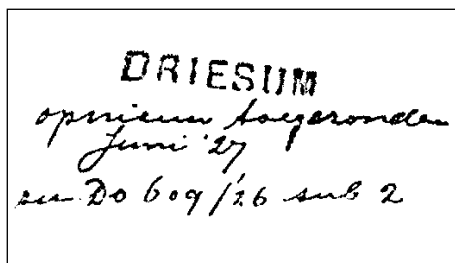 DRIESUM
opnieuw toegezonden
Juni '27
zie Do 609/'26 sub 2